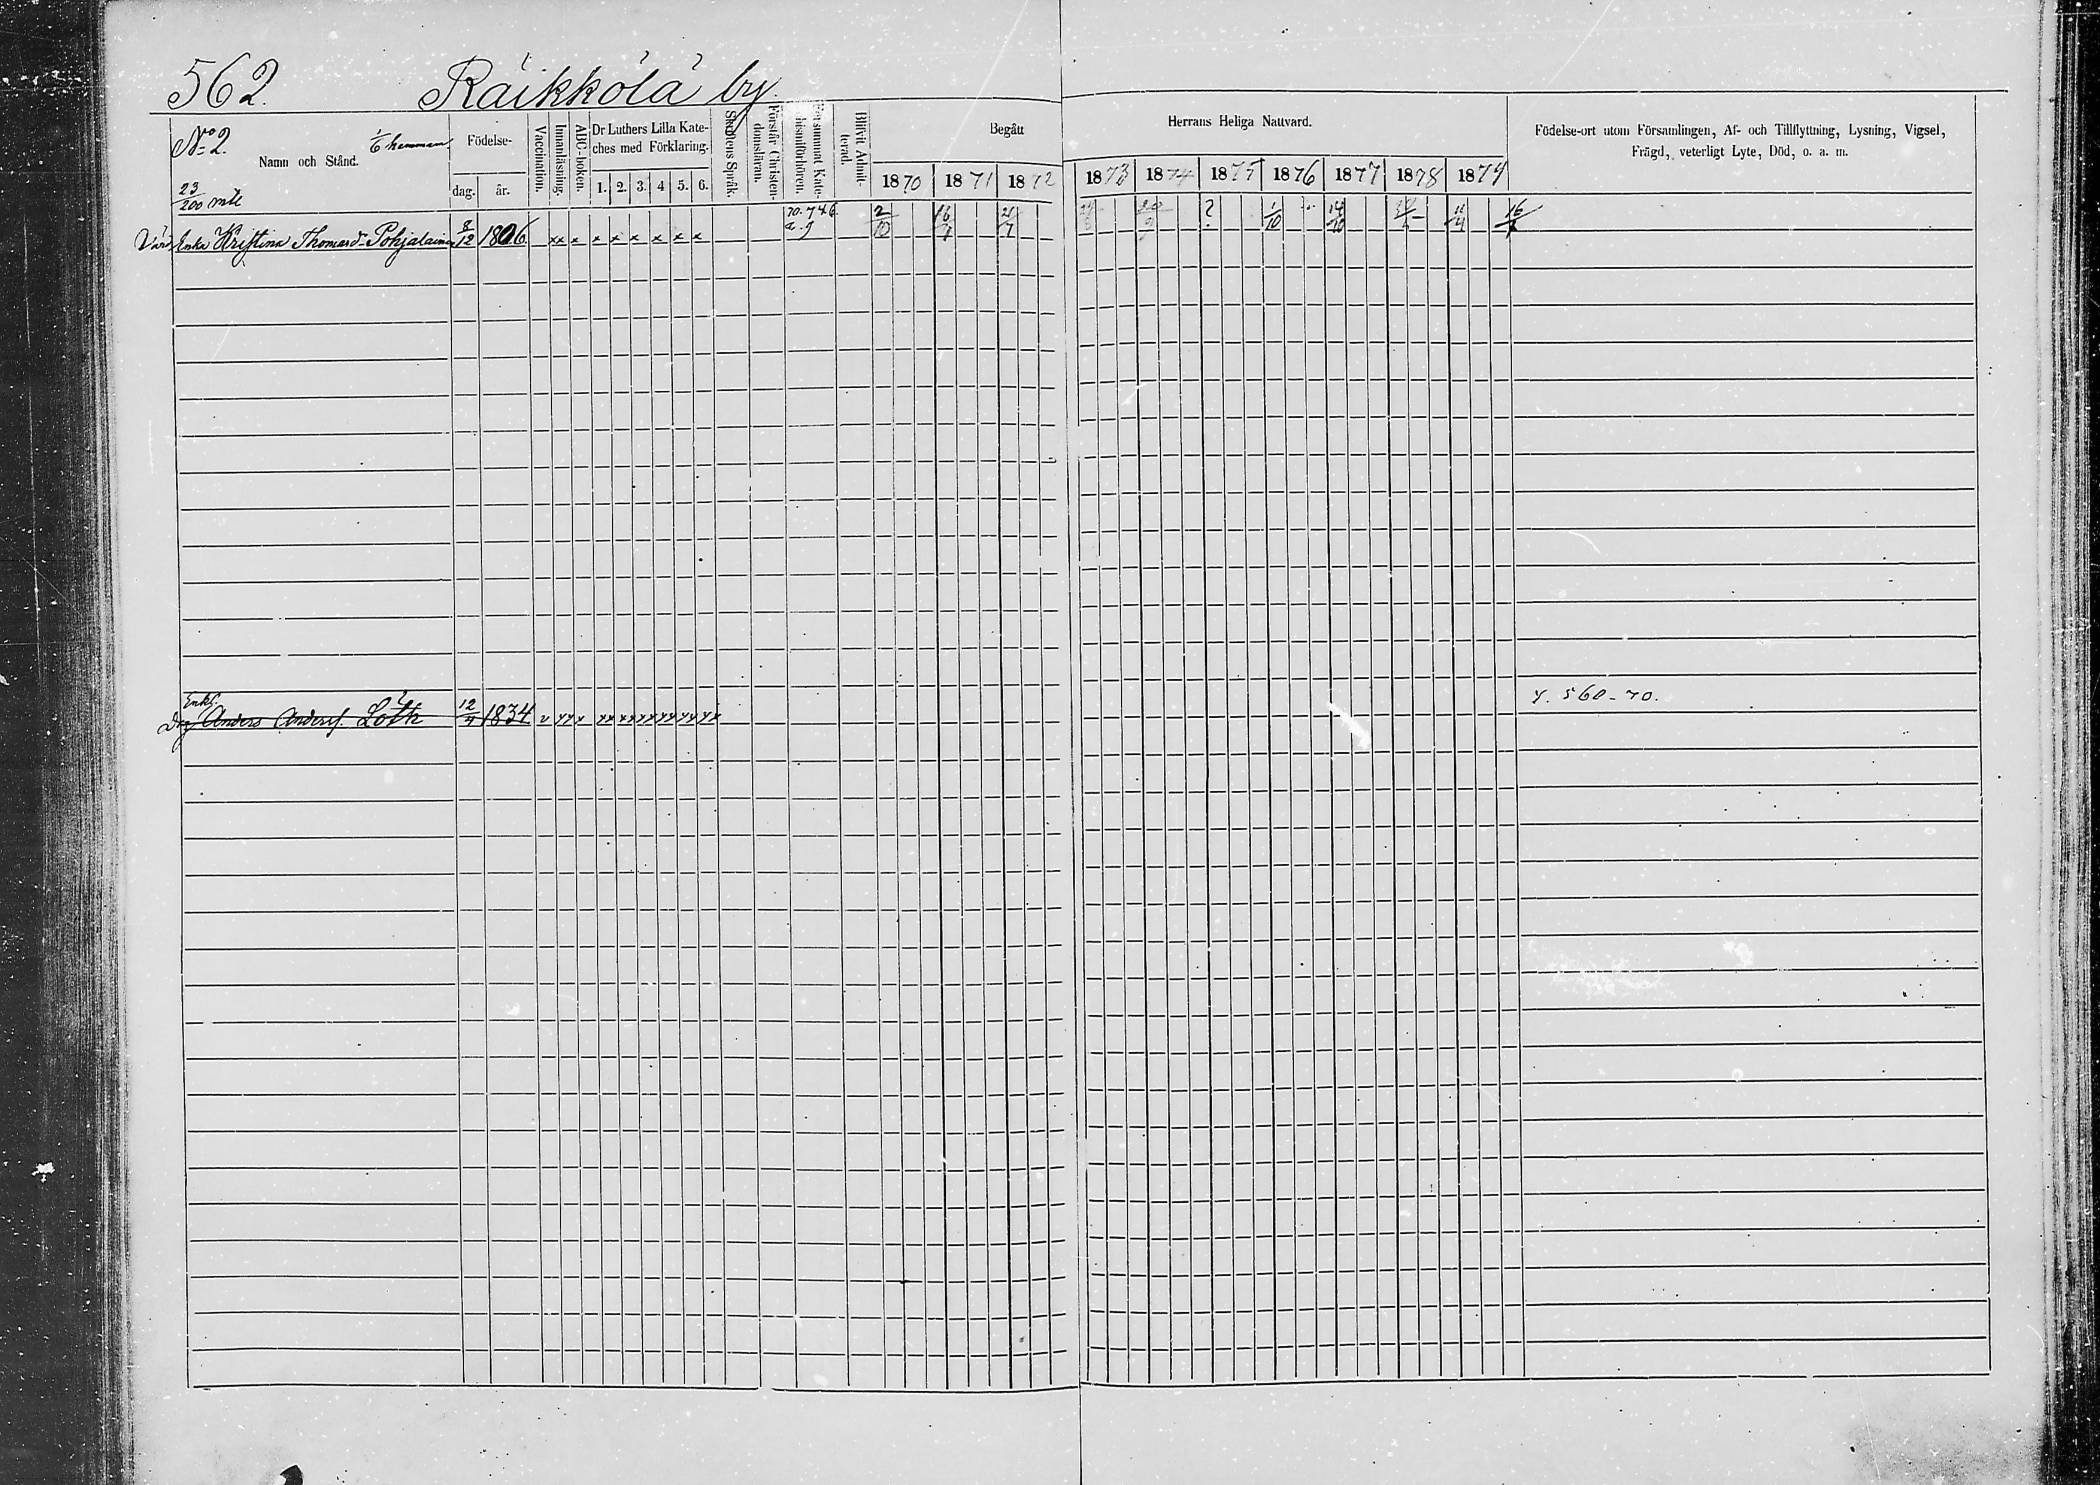 562. Räikkölä by.
No 2. 1/6 hemman
23/200 mtl
Namn och Stånd.
Födelse-
dag. år.
Vaccination.
Innanläsning.
ABC-boken.
Dr Luthers Lilla Kate-
ches med Förklaring.
1. 2. 3. 4 5. 6.
Skriftens Språk.
Förstår Christen-
domsläran.
Blifvit Admit-
terad.
Begått
Herrans Heliga Nattvard.
1870 1871 1872 1873 1874 1875 1876 1877 1878 1879
Födelse-ort utom Församlingen, Af- och Tillflyttning, Lysning, Vigsel,
Frägd, veterligt Lyte, Död, o. a. m.
Enka Kristina Thomasdr Pohjalainen 8/12 1806 xx x x x x x x x 2/10 16/4 ? 1/10 14/10 11/4
Enkl.
Drg Anders Andersf. Löth 12/4 1834 y. 560-70.